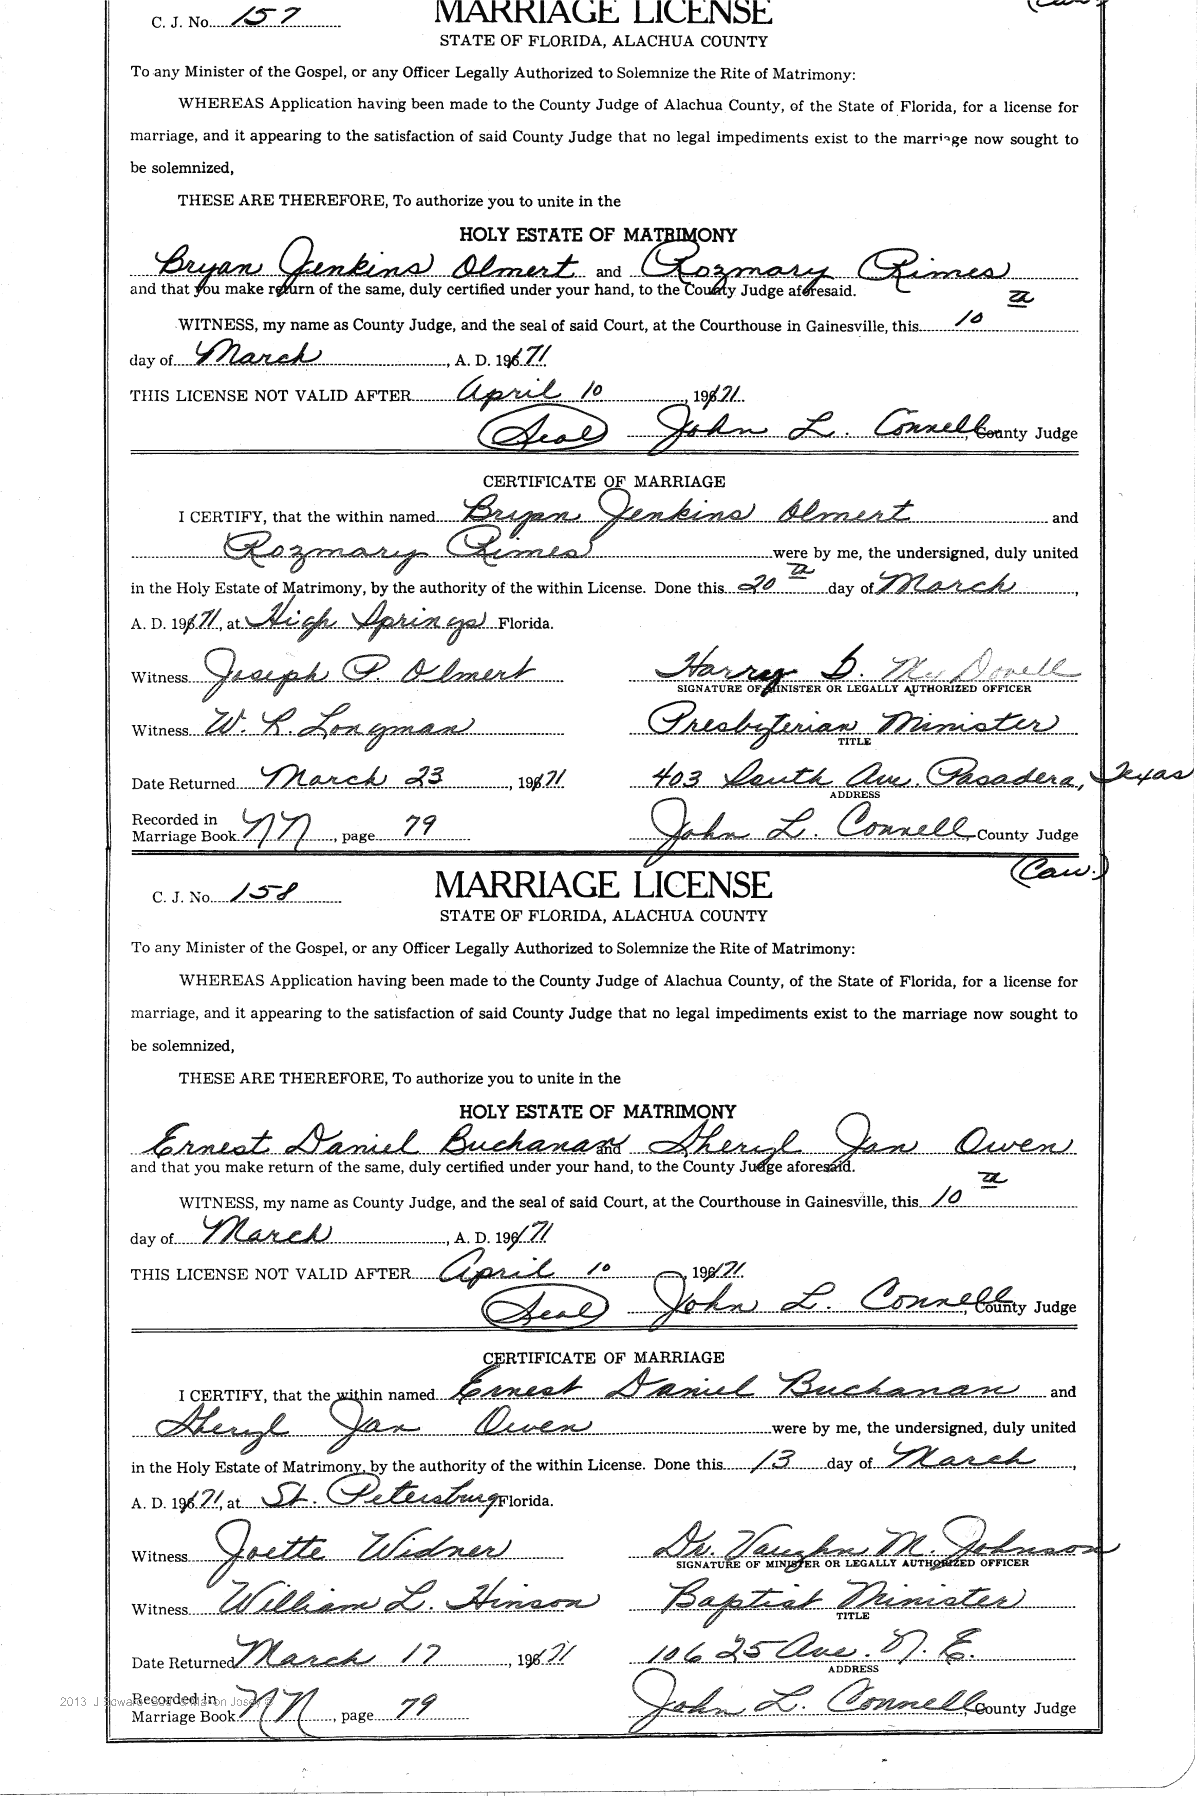 (Cau.)
C. J. No. 157 MARRIAGE LICENSE
STATE OF FLORIDA, ALACHUA COUNTY
To any Minister of the Gospel, or any Officer Legally Authorized to Solemnize the Rite of Matrimony:
WHEREAS Application having been made to the County Judge of Alachua County, of the State of Florida, for a license for
marriage, and it appearing to the satisfaction of said County Judge that no legal impediments exist to the marriage now sought to
be solemnized,
THESE ARE THEREFORE, To authorize you to unite in the
HOLY ESTATE OF MATRIMONY
Bryan Jenkins Olmert and Rozmary Rimes
and that you make return of the same, duly certified under your hand, to the County Judge aforesaid.
WITNESS, my name as County Judge, and the seal of said Court, at the Courthouse in Gainesville, this 10 th
day of March, A. D. 19671
THIS LICENSE NOT VALID AFTER April 10, 19671
(Seal) John L. Connell, County Judge
CERTIFICATE OF MARRIAGE
I CERTIFY, that the within named Bryan Jenkins Olmert and
Rozmary Rimes were by me, the undersigned, duly united
in the Holy Estate of Matrimony, by the authority of the within License. Done this 20 th day of March,
A. D. 19671, at High Springs Florida.
Witness Joseph P. Olmert Harrey D. McDonell
SIGNATURE OF MINISTER OR LEGALLY AUTHORIZED OFFICER
Witness W. R. Longman Presbyterian Minister
TITLE
Date Returned March 23, 19671 403 South Ave. Pasadera, Texas
ADDRESS
Recorded in
Marriage Book NN, page 79 John L. Connell County Judge
(Cau.)
C. J. No. 158 MARRIAGE LICENSE
STATE OF FLORIDA, ALACHUA COUNTY
To any Minister of the Gospel, or any Officer Legally Authorized to Solemnize the Rite of Matrimony:
WHEREAS Application having been made to the County Judge of Alachua County, of the State of Florida, for a license for
marriage, and it appearing to the satisfaction of said County Judge that no legal impediments exist to the marriage now sought to
be solemnized,
THESE ARE THEREFORE, To authorize you to unite in the
HOLY ESTATE OF MATRIMONY
Ernest Daniel Buchanan and Sheryl Jan Owen
and that you make return of the same, duly certified under your hand, to the County Judge aforesaid.
WITNESS, my name as County Judge, and the seal of said Court, at the Courthouse in Gainesville, this 10 th
day of March, A. D. 19671
THIS LICENSE NOT VALID AFTER April 10, 19671
(Seal) John L. Connell, County Judge
CERTIFICATE OF MARRIAGE
I CERTIFY, that the within named Ernest Daniel Buchanan and
Sheryl Jan Owen were by me, the undersigned, duly united
in the Holy Estate of Matrimony, by the authority of the within License. Done this 13 day of March,
A. D. 19671, at St. Petersburg Florida.
Witness Joette Widner Dr. Vaughn M. Johnson
SIGNATURE OF MINISTER OR LEGALLY AUTHORIZED OFFICER
Witness William L. Hinson Baptist Minister
TITLE
Date Returned March 17, 19671 106 25 Ave. N. E.
ADDRESS
Recorded in
Marriage Book NN, page 79 John L. Connell County Judge